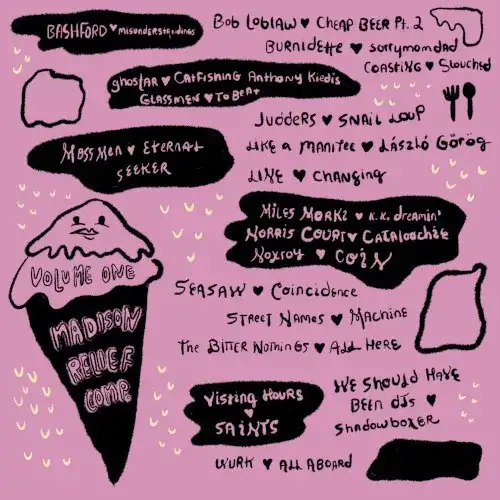 BASHFORD ♥ misunderstandings
Bob Loblaw ♥ Cheap Beer Pt. 2
Burnidette ♥ sorrymomdad
Coasting ♥ Slouched
ghostAR ♥ Catfishing Anthony Kiedis
Glassmen ♥ To Beat
Judders ♥ Snail Loup
Like a Manitee ♥ László Görög
LINE ♥ Changing
Moss Men ♥ Eternal
Seeker
Miles Morkz ♥ K.K. dreamin'
Norris Court ♥ Cataloochie
Noxroy ♥ Coin
Seasaw ♥ Coincidence
Street Names ♥ Machine
The Bitter Nothings ♥ All Here
VOLUME ONE
MADISON
RELIEF
COMP
Visiting Hours
♥
SAINTS
We Should Have
Been DJs ♥
Shadowboxer
WURK ♥ All Aboard